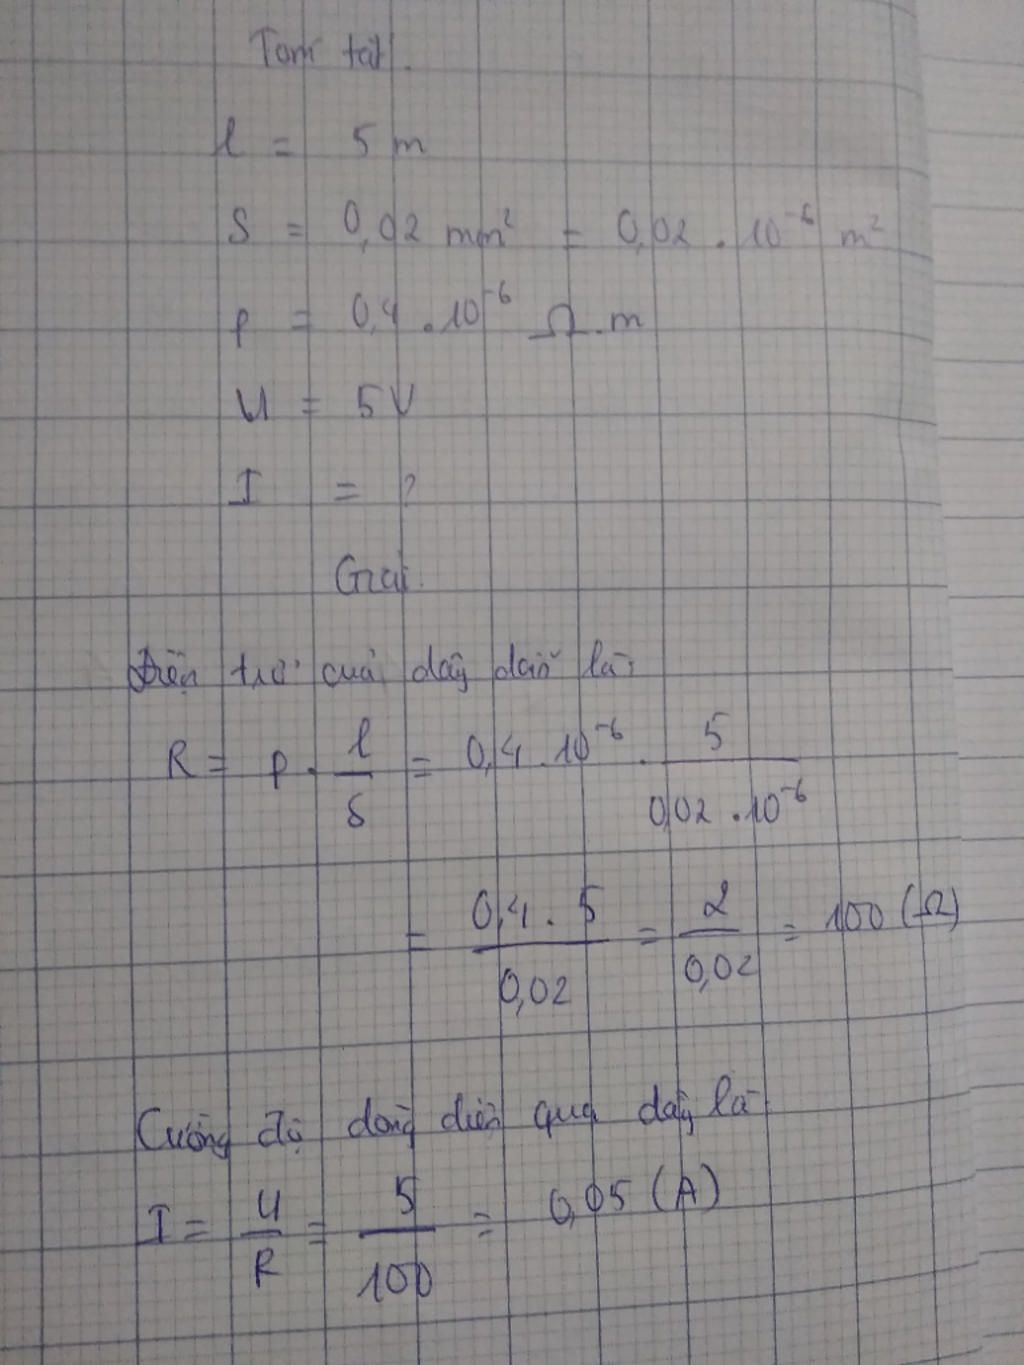 Tóm tắt.
l = 5 m
S = 0,02 mm² = 0,02 . 10⁻⁶ m²
ρ = 0,4 . 10⁻⁶ Ω.m
U = 5V
I = ?
Giải.
Điện trở của dây dẫn là:
R = ρ . l/S = 0,4 . 10⁻⁶ . 5/(0,02 . 10⁻⁶)
= (0,4 . 5)/0,02 = 2/0,02 = 100 (Ω)
Cường độ dòng điện qua dây là:
I = U/R = 5/100 = 0,05 (A)